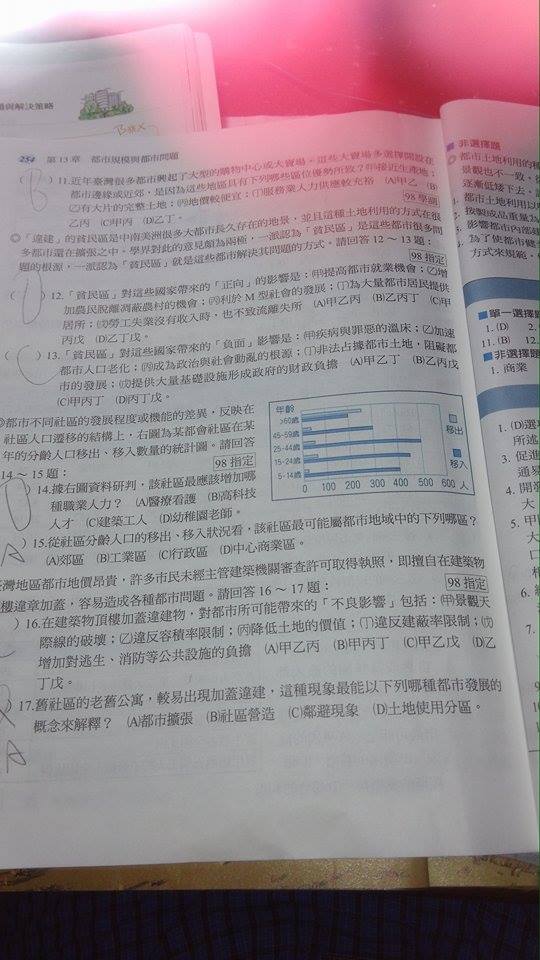 題與解決策略
254 第13章 都市規模與都市問題
11.近年臺灣很多都市興起了大型的購物中心或大賣場。這些大賣場多選擇開設在
都市邊緣或近郊,是因為這些地區具有下列哪些區位優勢所致?㈙接近生產地;
㈚有大片的完整土地;㈛地價較便宜;㈜服務業人力供應較充裕 (A)甲乙 (B)
乙丙 (C)甲丙 (D)乙丁。 98學測
◎「違建」的貧民區是中南美洲很多大都市長久存在的地景,並且這種土地利用的方式在很
多都市還在擴張之中。學界對此的意見頗為兩極,一派認為「貧民區」是這些都市很多問
題的根源,一派認為「貧民區」就是這些都市解決其問題的方式。請回答12~13題:
98指定
( D )12.「貧民區」對這些國家帶來的「正向」的影響是:㈙提高都市就業機會;㈚增
加農民脫離凋蔽農村的機會;㈛利於M型社會的發展;㈜為大量都市居民提供
居所;㈝勞工失業沒有收入時,也不致流離失所 (A)甲乙丙 (B)乙丙丁 (C)甲
丙戊 (D)乙丁戊。
( C )13.「貧民區」對這些國家帶來的「負面」影響是:㈙疾病與罪惡的溫床;㈚加速
都市人口老化;㈛成為政治與社會動亂的根源;㈜非法占據都市土地,阻礙都
市的發展;㈝提供大量基礎設施形成政府的財政負擔 (A)甲乙丁 (B)乙丙戊
(C)甲丙丁 (D)丙丁戊。
◎都市不同社區的發展程度或機能的差異,反映在
社區人口遷移的結構上,右圖為某都會社區在某
年的分齡人口移出、移入數量的統計圖。請回答
14~15題: 98指定
年齡
>60歲
45-59歲
25-44歲
15-24歲
5-14歲
0 100 200 300 400 500 600 人
移出
移入
14.據右圖資料研判,該社區最應該增加哪
種職業人力? (A)醫療看護 (B)高科技
人才 (C)建築工人 (D)幼稚園老師。
15.從社區分齡人口的移出、移入狀況看,該社區最可能屬都市地域中的下列哪區?
(A)郊區 (B)工業區 (C)行政區 (D)中心商業區。
臺灣地區都市地價昂貴,許多市民未經主管建築機關審查許可取得執照,即擅自在建築物
樓違章加蓋,容易造成各種都市問題。請回答16~17題: 98指定
)16.在建築物頂樓加蓋違建物,對都市所可能帶來的「不良影響」包括:㈙景觀天
際線的破壞;㈚違反容積率限制;㈛降低土地的價值;㈜違反建蔽率限制;㈝
增加對逃生、消防等公共設施的負擔 (A)甲乙丙 (B)甲丙丁 (C)甲乙戊 (D)乙
丁戊。
)17.舊社區的老舊公寓,較易出現加蓋違建,這種現象最能以下列哪種都市發展的
概念來解釋? (A)都市擴張 (B)社區營造 (C)鄰避現象 (D)土地使用分區。
A
非選擇題
都市土地利用的種
景觀也不一致,從
逐漸低矮下去。
都市土地利用以
按製成品重量為
影響都市內部
為了使都市健
方式來規範,
單一選擇題
1. (D) 2.
11. (B) 12.
非選擇題
1. 商業